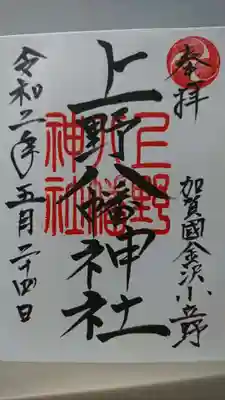 奉拝
加賀國金沢小立野
上野八幡神社
上野八幡神社
令和二年五月二十四日